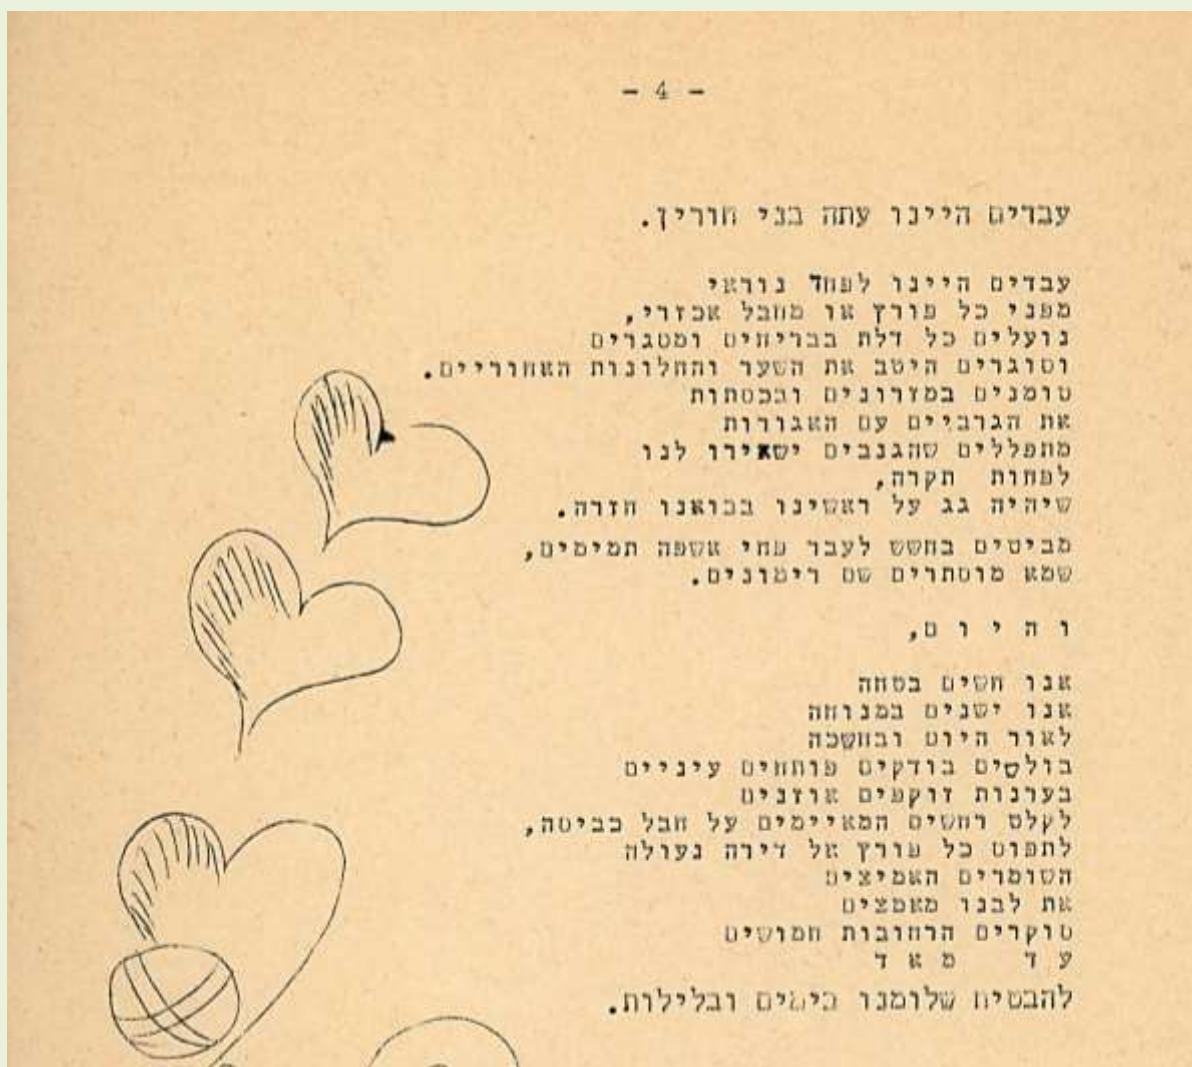 - 4 -
עבדים היינו עתה בני חורין.
עבדים היינו לפחד נוראי
מפני כל פורץ או מחבל אכזרי,
נועלים כל דלת בבריחים ומסגרים
וסוגרים היטב את השער והחלונות האחוריים.
טומנים במזרונים ובכסתות
את הגרביים עם האגורות
מתפללים שהגנבים ישאירו לנו
לפחות תקרה,
שיהיה גג על ראשינו בבואנו חזרה.
מביטים בחשש לעבר פחי אשפה תמימים,
שמא מוסתרים שם רימונים.
ו ה י ו ם,
אנו חשים בטחה
אנו ישנים במנוחה
לאור היום ובחשכה
בולשים בודקים פוחחים עיניים
בערנות זוקפים אוזניים
לקלט רחשים המאיימים על חבל כביסה,
לתפוס כל פורץ אל דירה נעולה
השומרים האמיצים
את לבנו מאמצים
סוקרים הרחובות חמושים
ע ד מ א ד
להבטיח שלומנו בימים ובלילות.